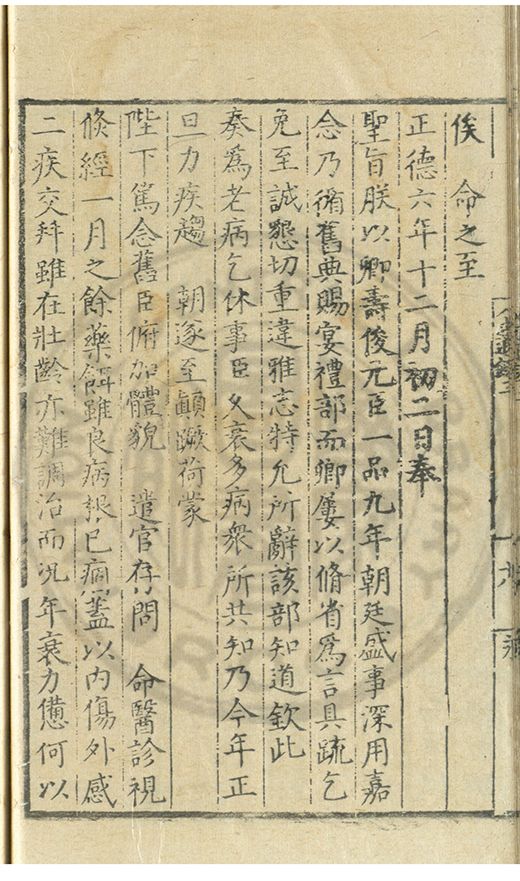 俟　命之至
正德六年十二月初二日奉
聖旨朕以卿壽俊元臣一品九年朝廷盛事深用嘉
念乃循舊典賜宴禮部而卿屢以脩省爲言具疏乞
免至誠懇切重違雅志特允所辭該部知道欽此
奏爲老病乞休事臣久衰多病衆所共知乃今年正
旦力疾趨　朝遂至顚蹶荷蒙
陛下篤念舊臣俯加體貌　遣官存問　命醫診視
倐經一月之餘藥餌雖良病根已痼蓋以内傷外感
二疾交攻雖在壯齡亦難調治而况年衰力憊何以